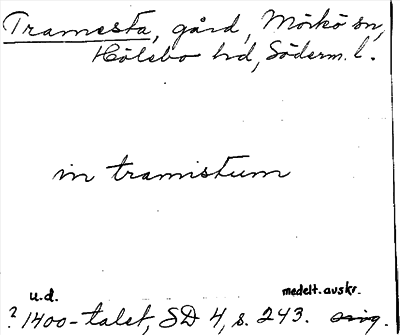 Tramsta, gård, Mörkö sn,
Hölebo hd, Söderm. l.
in tramistum
u.d. medelt. avskr.
? 1400-talet, SD 4, s. 243. orig.